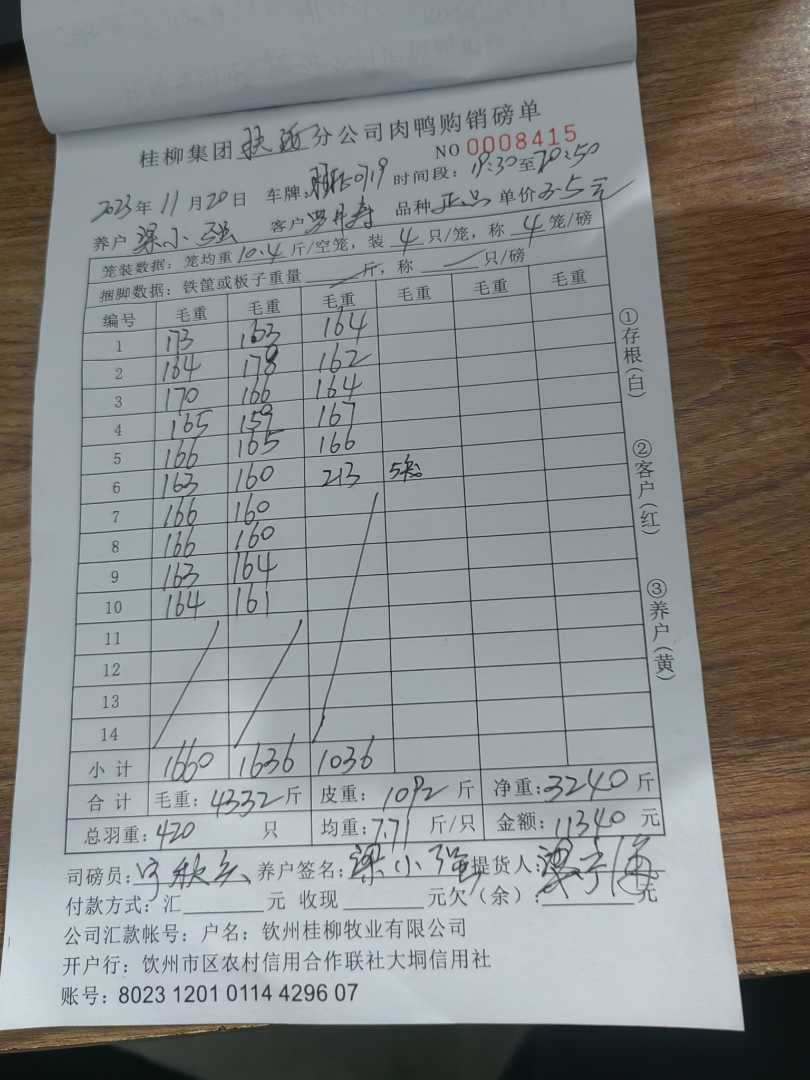 桂柳集团 分公司肉鸭购销磅单
NO 0008415
2023年 11月 20日 车牌: 0719 时间段: 19:30至20:50
养户 梁小强 客户 罗月寿 品种 正品 单价 3.5元
笼装数据: 笼均重 10.4 斤/空笼, 装 4 只/笼, 称 4 笼/磅
捆脚数据: 铁筐或板子重量 斤, 称 只/磅
编号 毛重 毛重 毛重 毛重 毛重 毛重
1 173 163 164
2 164 178 162
3 170 166 164
4 165 159 167
5 166 165 166
6 163 160 213 5笼
7 166 160
8 166 160
9 163 164
10 164 161
11
12
13
14
小计 1660 1636 1036
合计 毛重: 4332斤 皮重: 1092 斤 净重: 3240 斤
总羽重: 420 只 均重: 7.71 斤/只 金额: 11340 元
司磅员: 养户签名: 梁小强 提货人:
付款方式: 汇 元 收现 元欠(余): 元
公司汇款帐号: 户名: 钦州桂柳牧业有限公司
开户行: 钦州市区农村信用合作联社大垌信用社
账号: 8023 1201 0114 4296 07
①存根(白)
②客户(红)
③养户(黄)